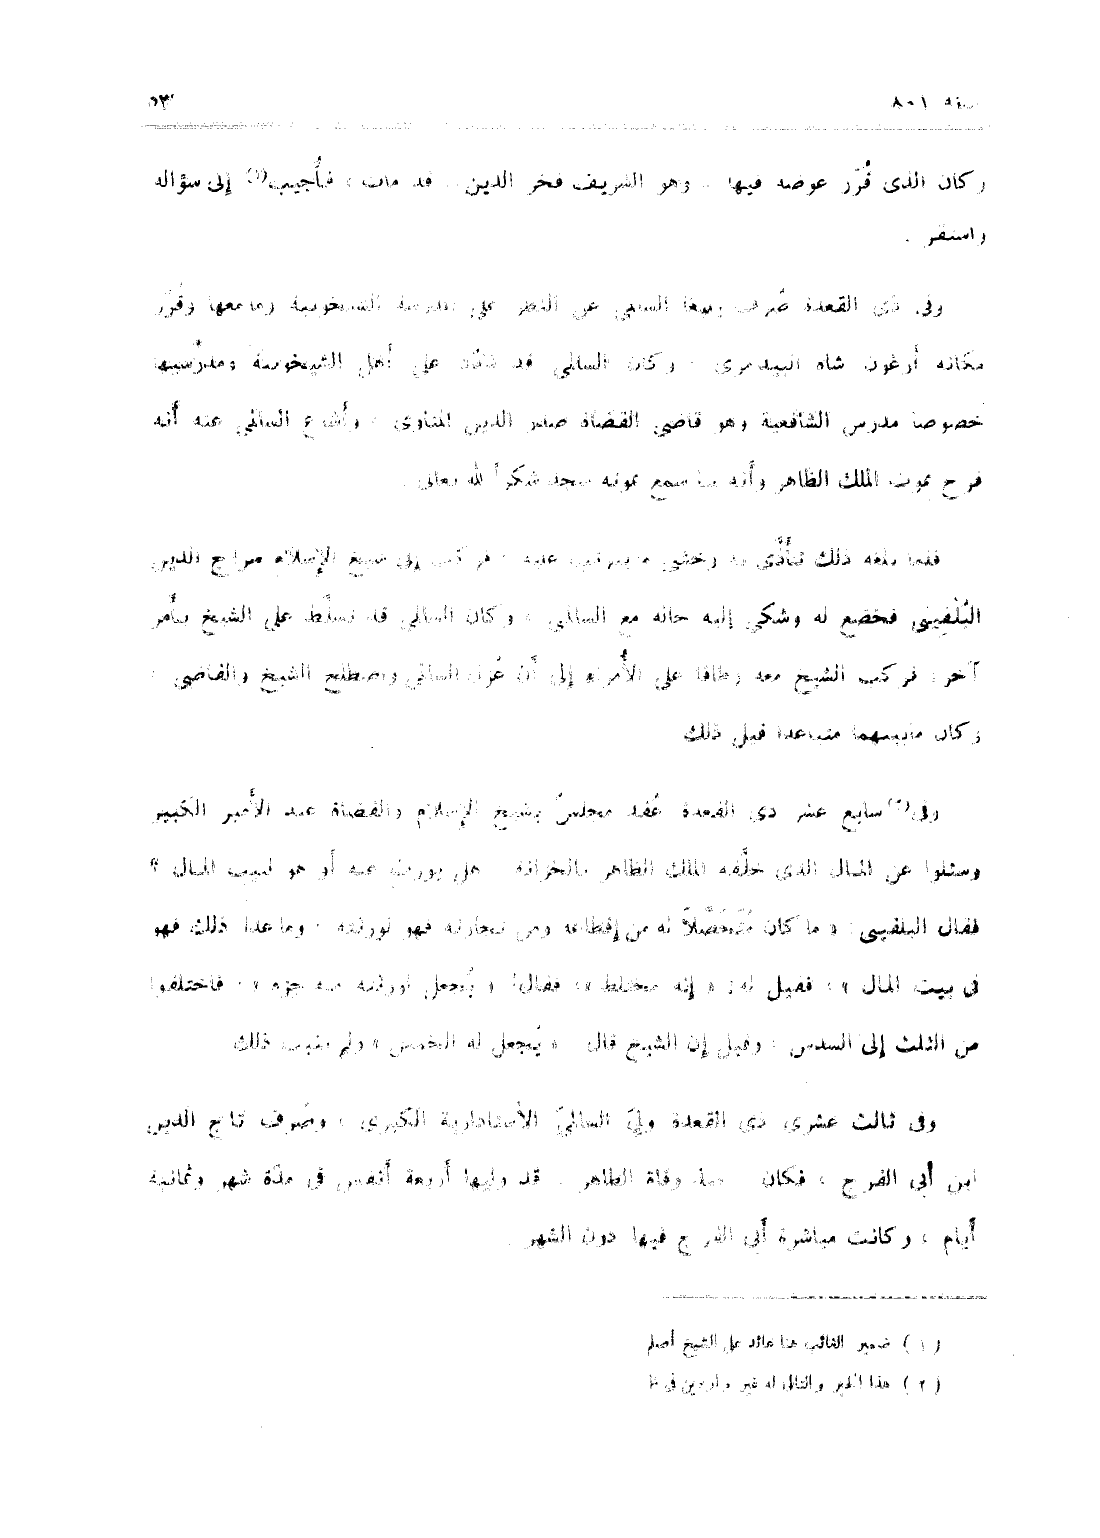 سنة ٨٠١ ٥٣
وكان الذى قُرّر عوضه فيها . وهو الشريف فخر الدين . قد مات ، فأُجيب(١) إلى سؤاله
واستقر .
وفى ذى القعدة صُرف يلبغا السالمى عن النظر على المدرسة الشيخونية وجامعها وقُرّر
مكانه أرغون شاه البيدمرى ، وكان السالمى قد على أهل الشيخونية ومدرّسيها
خصوصا مدرس الشافعية وهو قاضى القضاة صدر الدين المناوى ، وأشاع السالمى عنه أنه
فرح بموت الملك الظاهر وأنه لما سمع بموته سجد شكراً لله تعالى .
فلما بلغه ذلك تأذَّى به وخشى ما يترتب عليه ، فركب إلى شيخ الإسلام سراج الدين
البُلْقينى فخضع له وشكى إليه حاله مع السالمى ، وكان السالمى قد تسلَّط على الشيخ بأمر
آخر ، فركب الشيخ معه وطافا على الأُمراء إلى أن عُزل السالمى واصطلح الشيخ والقاضى ،
وكان مابينهما متباعدا قبل ذلك
وفى(٢) سابع عشر ذى القعدة عُقد مجلسٌ بشيخ الإسلام والقضاة عند الأمير الكبير
وسئلوا عن المال الذى خلَّفه الملك الظاهر بالخزانة هل يورث عنه أو هو لبيت المال ؟
فقال البلقينى : « ما كان مُتَحَصَّلاً له من إقطاعه ومن تجارته فهو لورثته ، وما عدا ذلك فهو
فى بيت المال » ، فقيل له : « إنه مختلط » ، فقال : « يُجعل لورثته منه جزء » ، فاختلفوا
من الثلث إلى السدس ، وقيل إن الشيخ قال « يُجعل له الخمس » ولم يثبت ذلك
وفى ثالث عشرى ذى القعدة ولىّ السالمىّ الأستادارية الكبرى ، وصُرف تاج الدين
ابن أبى الفرج ، فكان منذ وفاة الظاهر . قد وليها أربعة أنفس فى مدّة شهر وثمانية
أيام ، وكانت مباشرة أبى الفرج فيها دون الشهر
( ١ ) ضمير الغائب هنا عائد على الشيخ أصلم
( ٢ ) هذا الخبر والتالى له غير واردين فى ظ